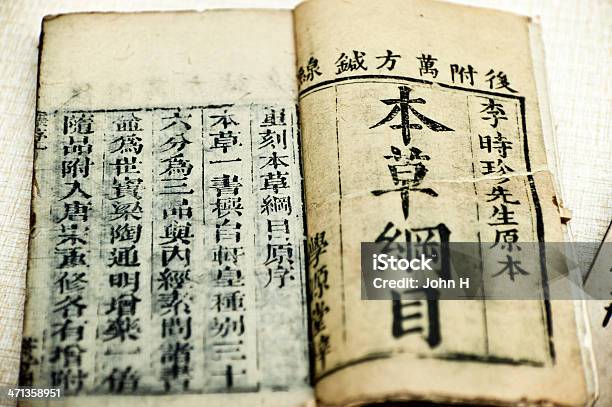 後附萬方鍼線
李時珍先生原本
本草綱目
學原堂梓
重刻本草綱目原序
本草一書撰自軒皇種列三十
六分爲三品與內經素問諸書
並爲世寳梁陶通明增藥一倍
隨品附入唐宋重修各有增附
iStock
Credit: John H
471358951